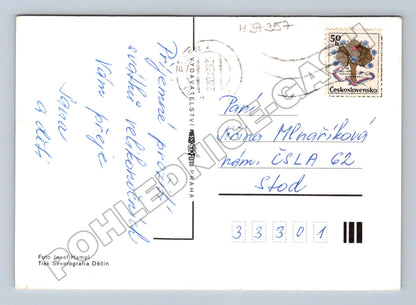 H27357
50
Československo
Příjemné prožití
svátků velikonočních
Vám přeje
Jana
a děti
VYDAVATELSTVÍ
PRAHA
Paní
Jiřina Mlnaříková
nám. ČSLA 62
Stod
3 3 3 0 1
Foto Josef Hampl
Tisk Severografia Děčín
POHLEDNICE-CASH